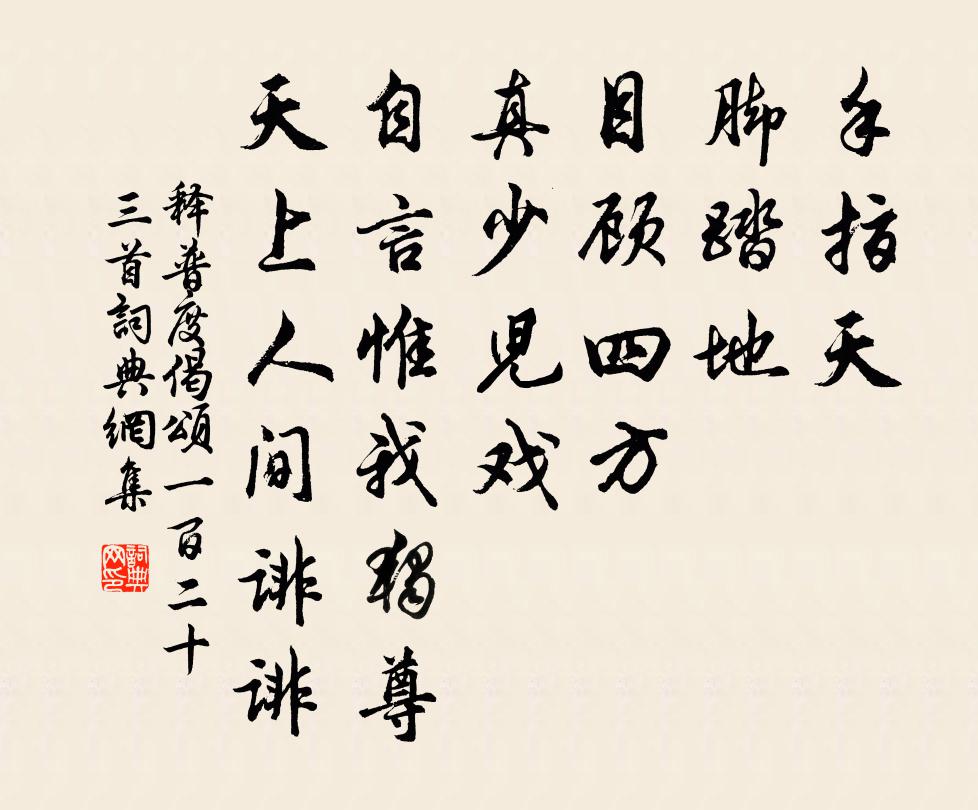 手指天
脚踏地
目顾四方
真少児戏
自言惟我独尊
天上人间诽诽
释普度偈颂一百二十
三首詞典網集
詞典网印